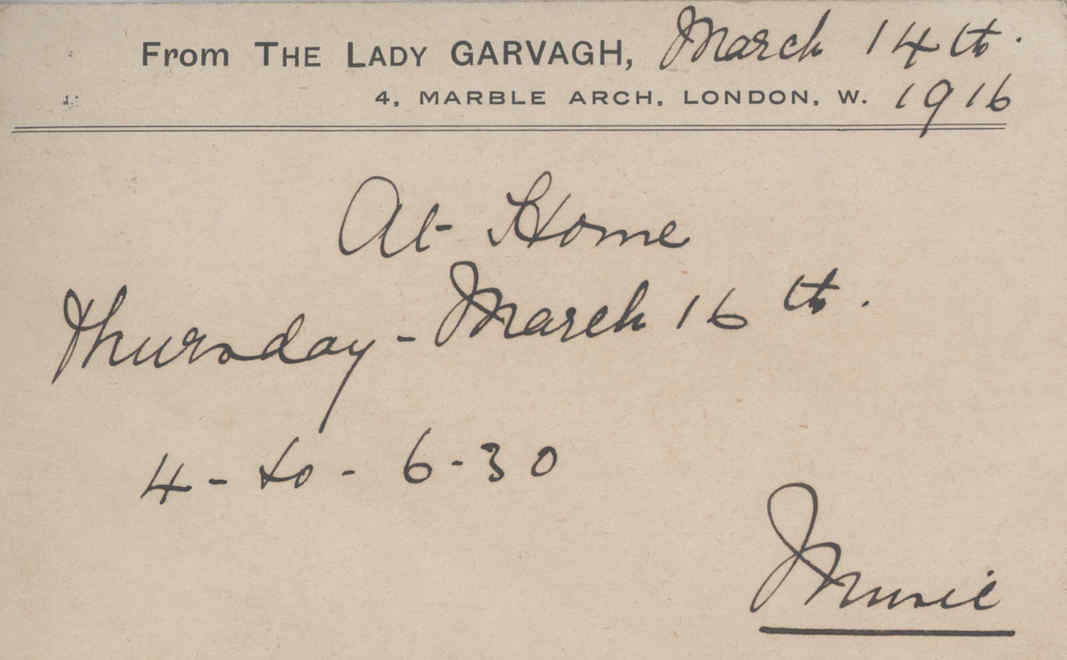 From THE LADY GARVAGH, March 14th.
4, MARBLE ARCH, LONDON, W. 1916
At Home
Thursday - March 16th.
4 - to - 6-30
Music